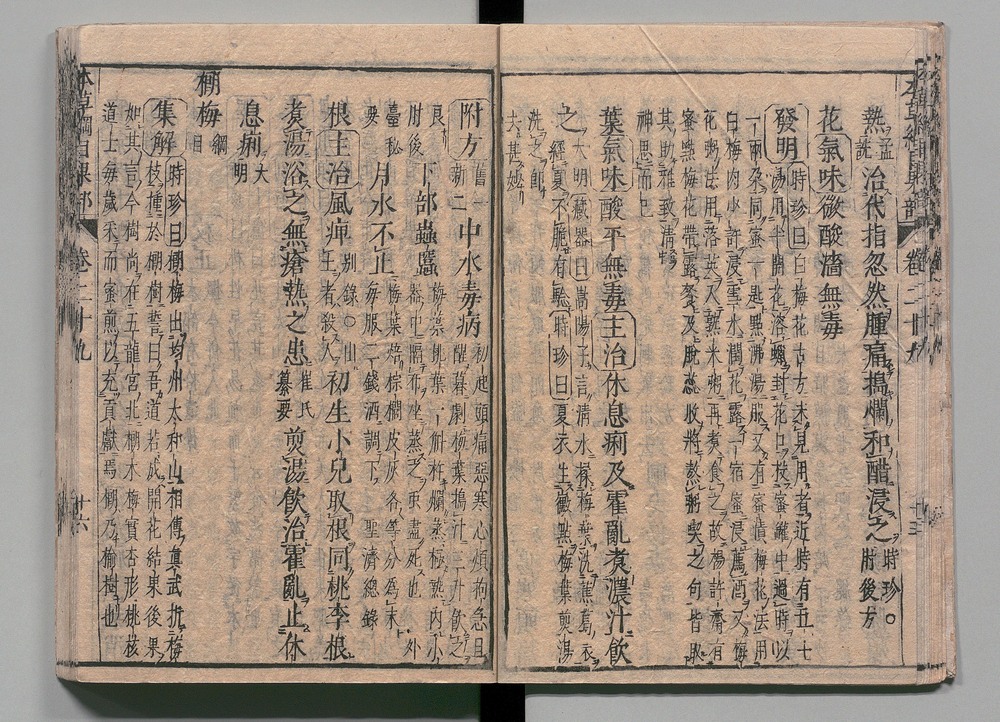 熱孟詵治代指忽然腫痛搗爛和醋浸之時珍○肘後方
花氣味微酸濇無毒
發明時珍曰白梅花古方未見用者近時有
湯用半開花溶蠟封花口投蜜罐中過時以
一兩朶同蜜一匙點沸湯服又有蜜漬梅花法用
白梅肉少許浸雪水潤花露一宿蜜浸薦酒又梅
花粥法用落英入熟米粥再煮食之故楊
蜜點梅花帶露餐及脫蕊收將熬粥喫之句皆取
其助雅致清
神思而已
葉氣味酸平無毒主治休息痢及霍亂煮濃汁飲
之大明藏器曰嵩陽子言清水揉梅葉洗蕉葛衣
經夏不脆有驗時珍曰夏衣生黴點梅葉煎湯
洗之即
去甚妙
附方舊一新二中水毒病初起頭痛惡寒心煩拘急旦
醒暮劇梅葉搗汁三升飲之
良肘後下部蟲䘌梅葉桃葉一斛杵爛蒸極熱內小
器中隔布坐蒸之蟲盡死也外
臺秘要月水不止梅葉焙棕櫚皮灰各等分爲末
每服二錢酒調下聖濟總錄
根主治風痺別錄○出土者殺人初生小兒取根同桃李根
煮湯浴之無瘡熱之患崔氏纂要煎湯飲治霍亂止休
息痢大明
榔梅綱目
集解時珍曰榔梅出均州太和山相傳真武折梅
枝插於榔樹誓曰吾道若成開花結果後果
如其言今樹尚在五龍宮北榔木梅實杏形桃核
道士每歲采而蜜煎以充貢獻焉榔乃榆樹也